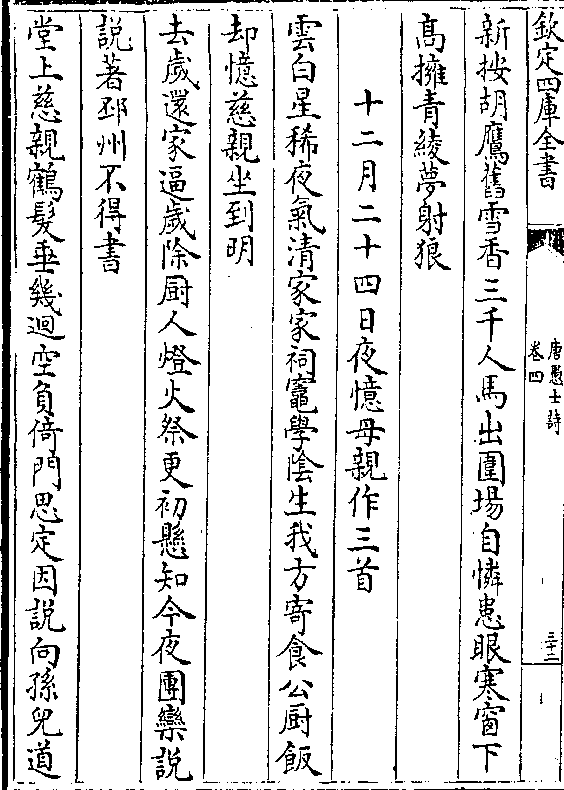 欽定四庫全書
唐愚士詩
卷四
三十二
新按胡鷹舊雪香三千人馬出圍場自憐患眼寒窗下
髙擁青綾夢射狼
十二月二十四日夜憶母親作三首
雲白星稀夜氣清家家祠竈學隂生我方寄食公厨飯
却憶慈親坐到明
去歲還家逼歲除厨人燈火祭更初懸知今夜團欒說
說著邳州不得書
堂上慈親鶴髮垂幾迴空負倚門思定因說向孫兒道